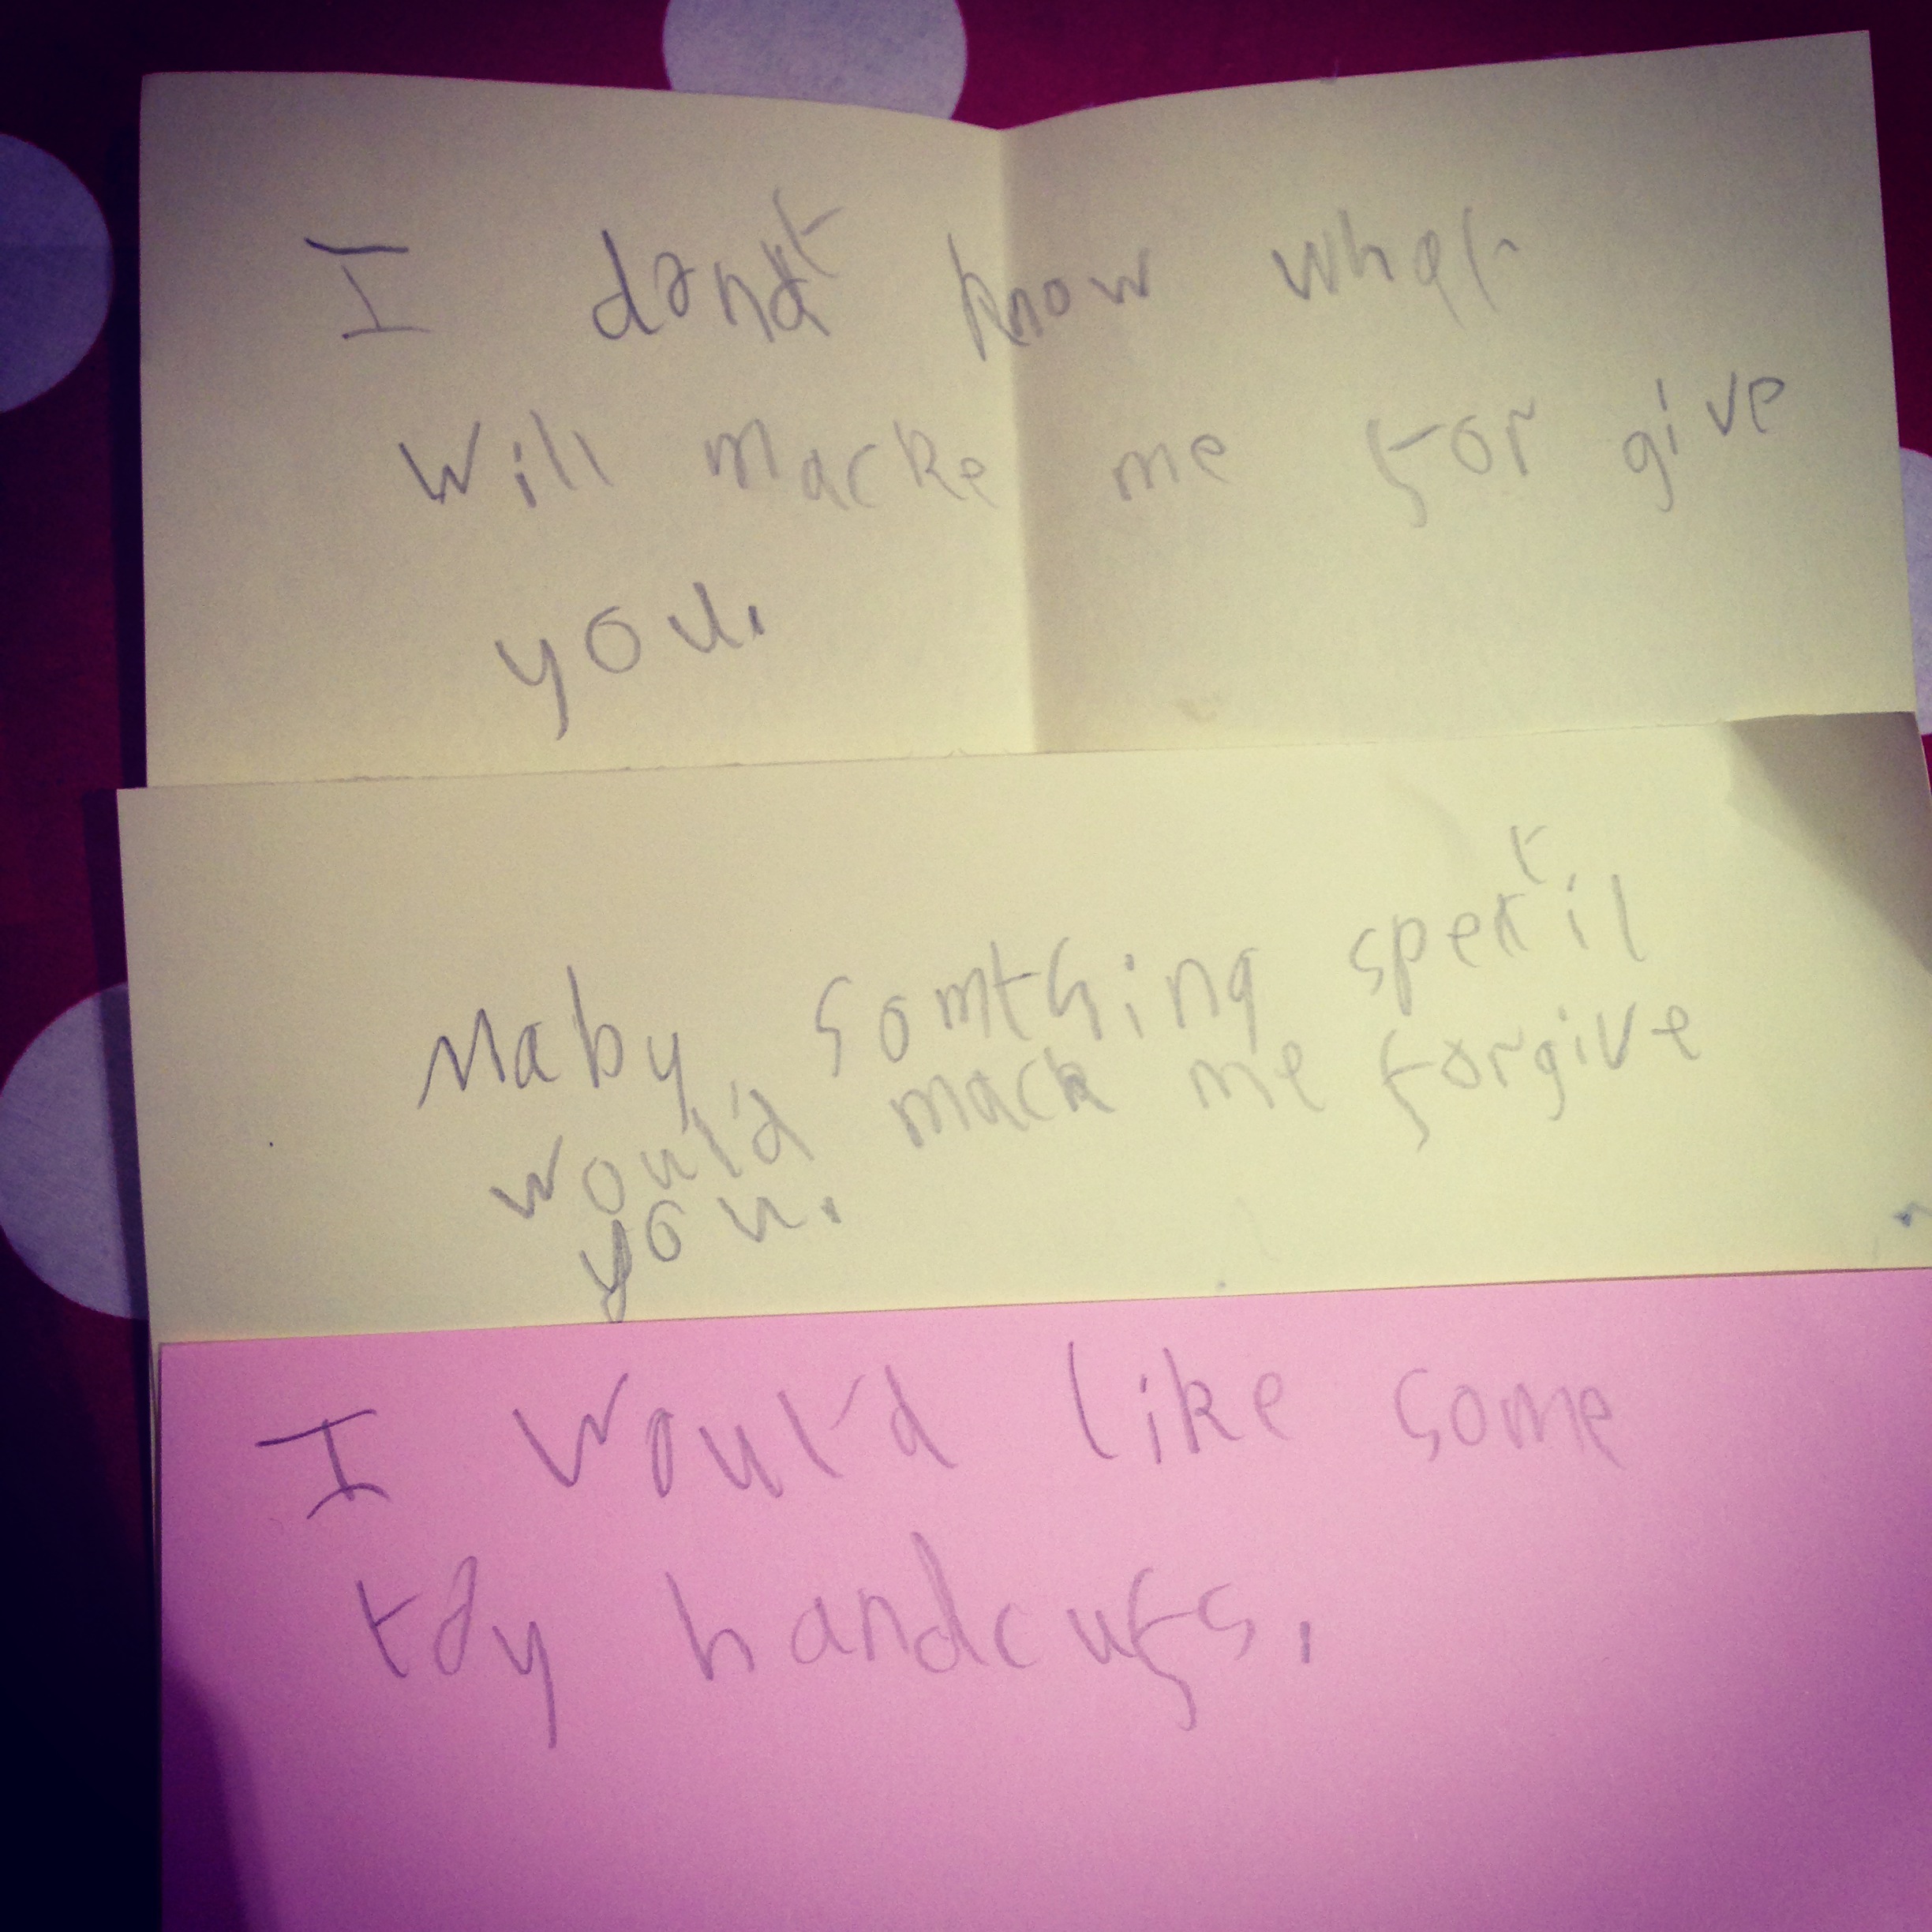 I dont know what
will macke me for give
you.
Maby somthing spetil
would mack me forgive
you.
I would like some
toy handcufs.